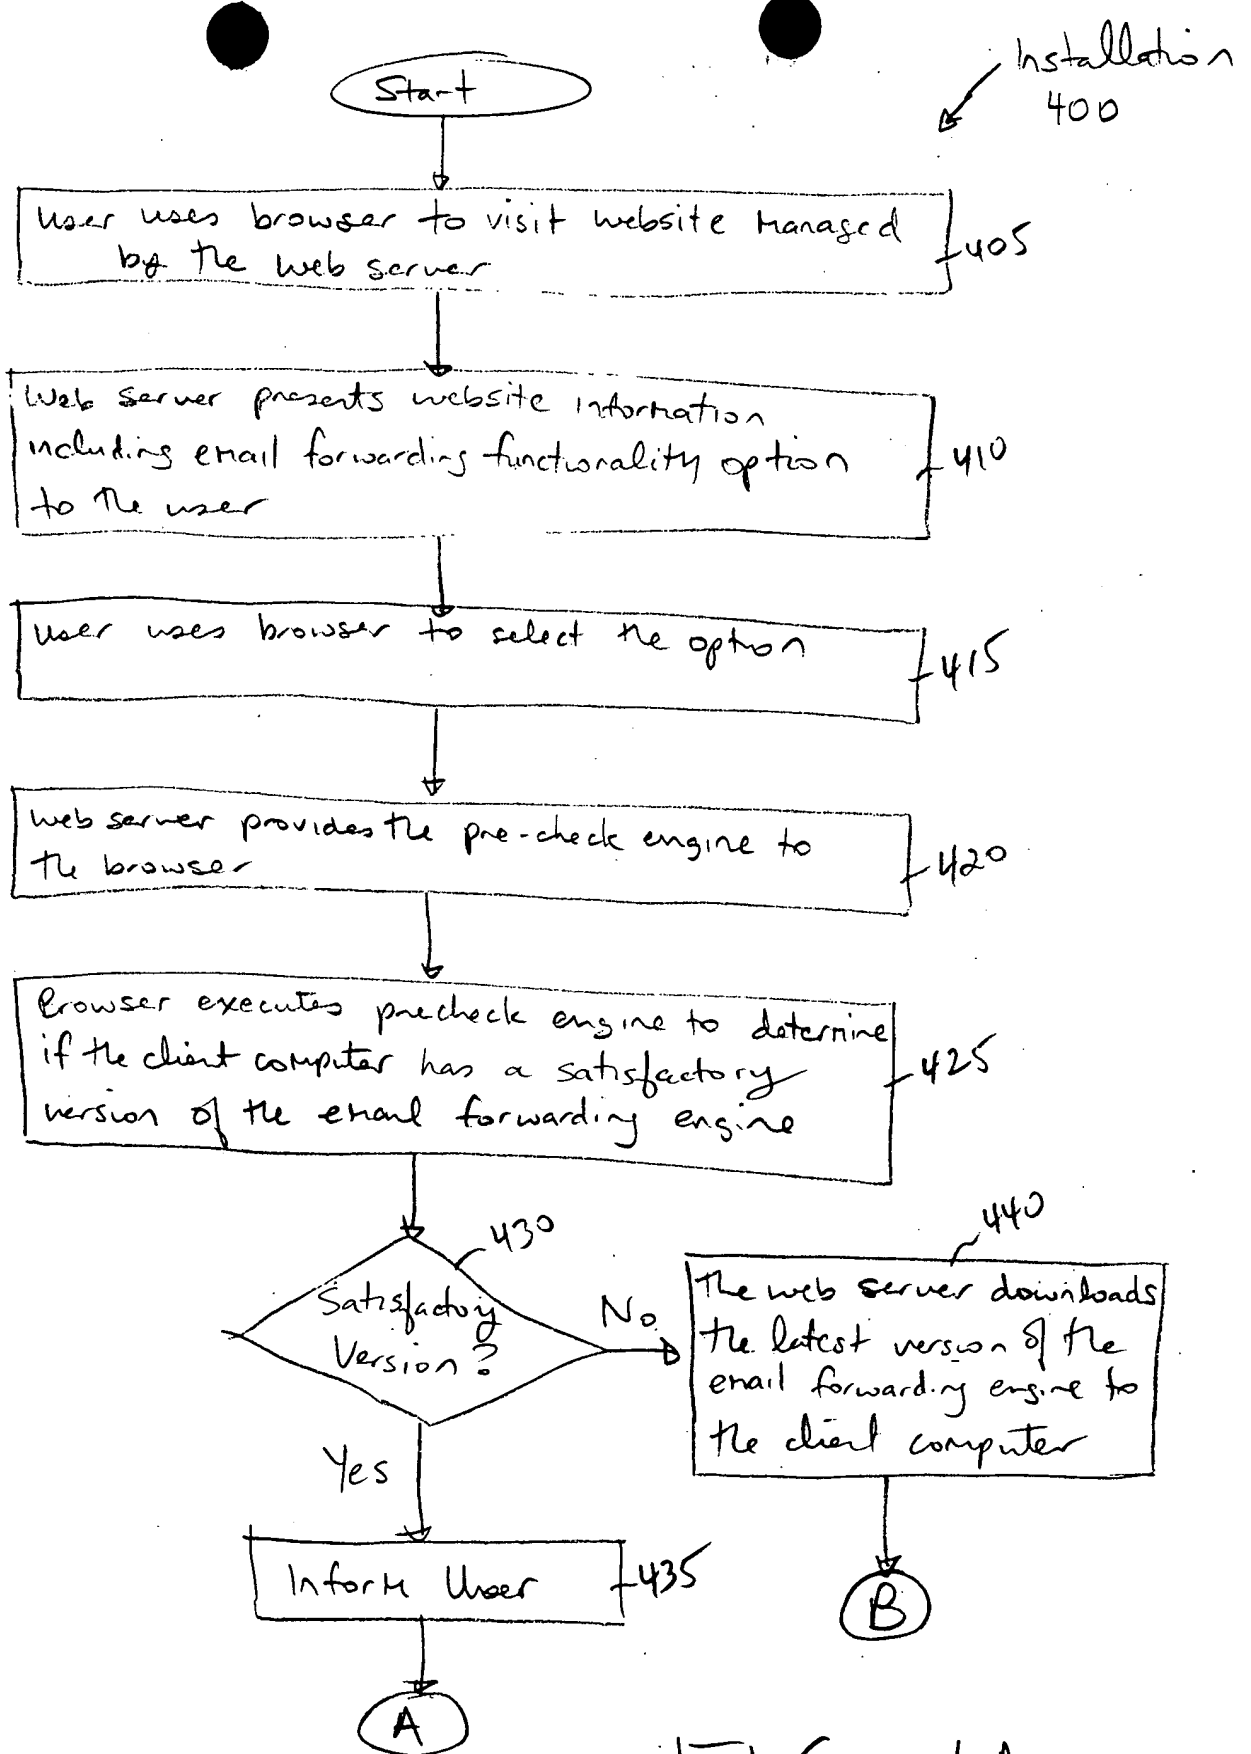 Installation
400
Start
User uses browser to visit website managed
by the web server
405
Web server presents website information
including email forwarding functionality option
to the user
410
User uses browser to select the option
415
Web server provides the pre-check engine to
the browser
420
Browser executes precheck engine to determine
if the client computer has a satisfactory
version of the email forwarding engine
425
430
Satisfactory
Version?
No
Yes
440
The web server downloads
the latest version of the
email forwarding engine to
the client computer
Inform User
435
B
A